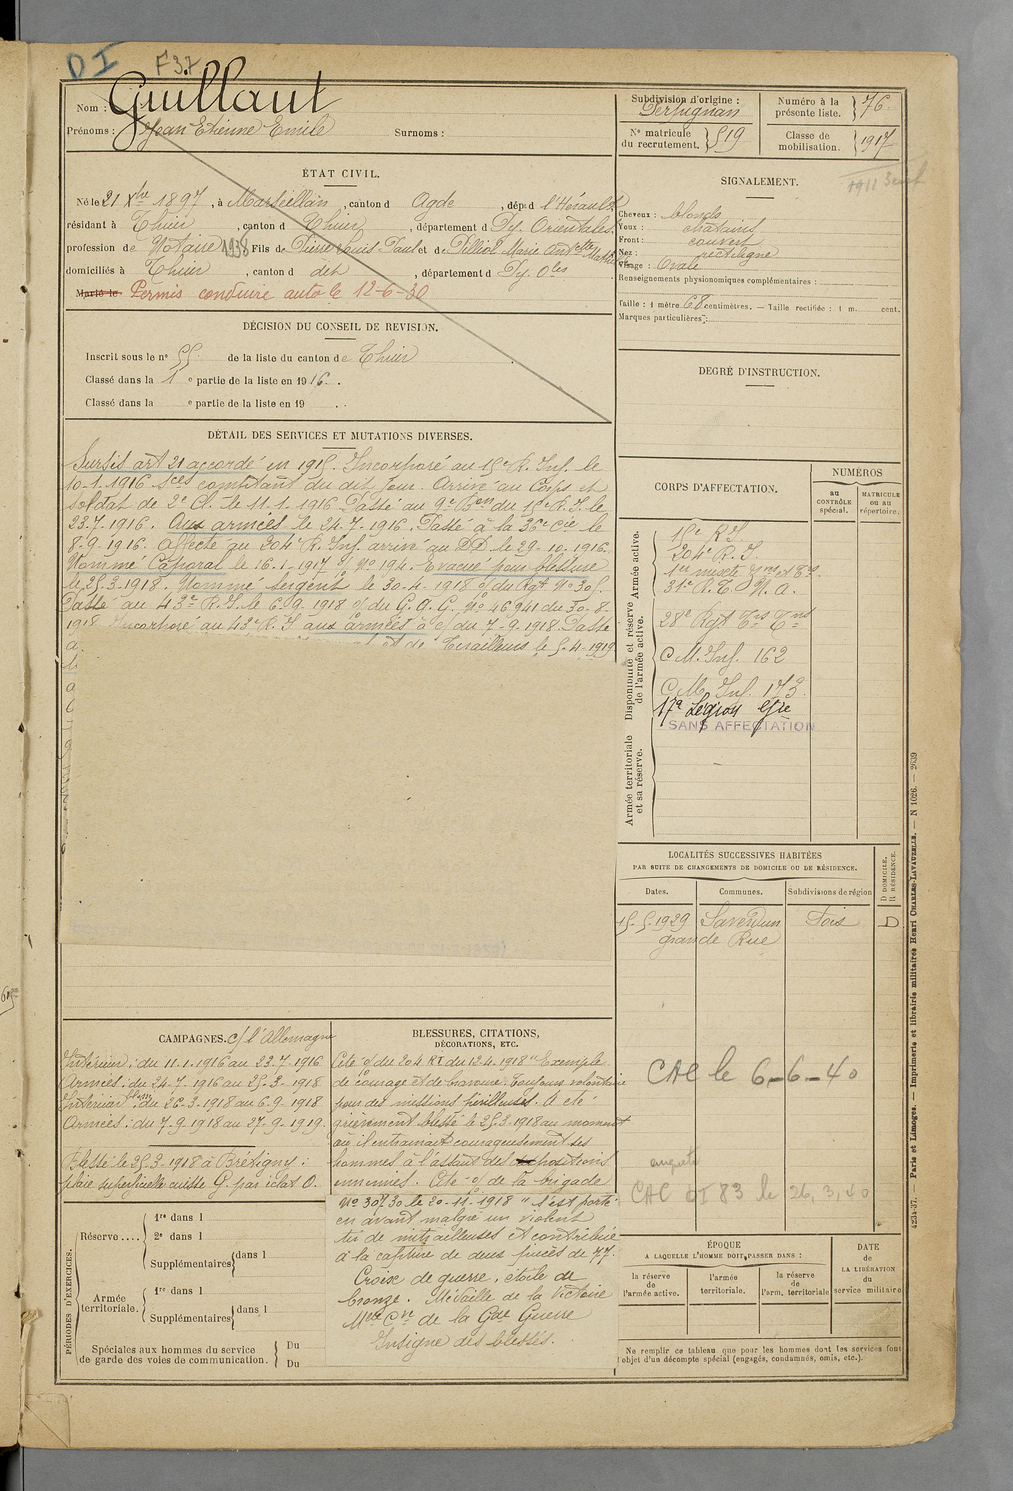 DI F37
Nom : Guillaut
Prénoms : Jean Etienne Emile Surnoms :
ÉTAT CIVIL.
Né le 21 Xbre 1897, à Marseillan, canton d Agde, dép. d l'Hérault
résidant à Thuir, canton d Thuir, département d Py. Orientales
profession de Notaire 1938 Fils de Pierre Louis Paul et de Marie
domiciliés à Thuir, canton d dit, département d Py. Oles
Marié le Permis conduire auto le 12-6-30
DÉCISION DU CONSEIL DE REVISION.
Inscrit sous le n° 55 de la liste du canton de Thuir
Classé dans la 1 e partie de la liste en 1916.
Classé dans la e partie de la liste en 19 .
DÉTAIL DES SERVICES ET MUTATIONS DIVERSES.
Sursis art 21 accordé en 1915. Incorporé au 15e R. Inf. le
10-1-1916 Sces comptant du dit jour. Arrivé au Corps et
soldat de 2e Cl. le 11-1-1916. Passé au 9e Bon du 15e R.I. le
23.7.1916. Aux armées le 24.7.1916. Passé à la 36e Cie le
8-9-1916. affecté au 304e R. Inf. arrivé au DD. le 29-10-1916.
Nommé Caporal le 16-1-1917 N° 194. Evacué pour blessure
le 25-3-1918. Nommé sergent le 30-4-1918 du Rgt N° 305.
Passé au 43e R.I. le 6-9-1918 du G.Q.G. N° 46941 du 30-8-
1918. Incorporé au 43e R.I aux armées à c/ du 7-9-1918. Passé
a. et de Tirailleurs le 5-4-1919
CAMPAGNES. c/ l'Allemagne
Intérieur : du 11-1-1916 au 23-7-1916
Armées : du 24-7-1916 au 25-3-1918
Intérieur du 26-3-1918 au 6-9-1918
Armées : du 7-9-1918 au 27-9-1919.
Blessé le 25-3-1918 à Brétigny :
plaie superficielle cuisse G. par éclat O.
BLESSURES, CITATIONS,
DÉCORATIONS, ETC.
Cité du 204 RI du 12-4-1918 "Exemple
de courage et de bravoure. Toujours volontaire
pour des missions périlleuses. A été
grièvement blessé le 25-3-1918 au moment
où il entrainait courageusement ses
hommes à l'assaut des positions
ennemies. Cité de la brigade
N° 30730 le 20-11-1918 "s'est porté
en avant malgré un violent
tir de mitrailleuses et contribué
à la capture de deux pièces de 77.
Croix de guerre, étoile de
bronze. Médaille de la Victoire
Mlle Cve de la Gde Guerre
Insigne des blessés.
PÉRIODES D'EXERCICES.
Réserve .... 1re dans l
2e dans l
Supplémentaires dans l
Armée territoriale. 1re dans l
Supplémentaires dans l
Spéciales aux hommes du service
de garde des voies de communication. Du
Du
Subdivision d'origine :
Perpignan
N° matricule
du recrutement. 519
Numéro à la
présente liste. 76
Classe de
mobilisation. 1917
SIGNALEMENT.
Cheveux : blonds
Yeux : chatains
Front : couvert
Nez : rectiligne
Visage : Ovale
Renseignements physionomiques complémentaires :
Taille : 1 mètre 68 centimètres. — Taille rectifiée : 1 m. cent.
Marques particulières :
DEGRÉ D'INSTRUCTION.
CORPS D'AFFECTATION.
NUMÉROS
au
CONTRÔLE
spécial.
MATRICULE
ou au
répertoire.
Armée active.
15e R.I.
204e R.I.
31e R.T. N.A.
Disponibilité et réserve
de l'armée active.
28e Rgt
C M. Inf. 162
C M. Inf. 173
17e Légion Gie
SANS AFFECTATION
Armée territoriale
et sa réserve.
LOCALITÉS SUCCESSIVES HABITÉES
PAR SUITE DE CHANGEMENTS DE DOMICILE OU DE RÉSIDENCE.
Dates. Communes. Subdivisions de région
D DOMICILE.
R RÉSIDENCE.
15-5-1929 Saverdun Foix D
grande Rue
CAC le 6-6-40
CAC DI 83 le 26,3,40
ÉPOQUE
A LAQUELLE L'HOMME DOIT PASSER DANS :
la réserve
de l'armée active.
l'armée
territoriale.
la réserve
de
l'arm. territoriale
DATE
de
LA LIBÉRATION
du
service militaire
Ne remplir ce tableau que pour les hommes dont les services font
l'objet d'un décompte spécial (engagés, condamnés, omis, etc.).
4234-37. — Paris et Limoges. — Imprimerie et librairie militaires Henri CHARLES-LAVAUZELLE. — N 1026. — 2639